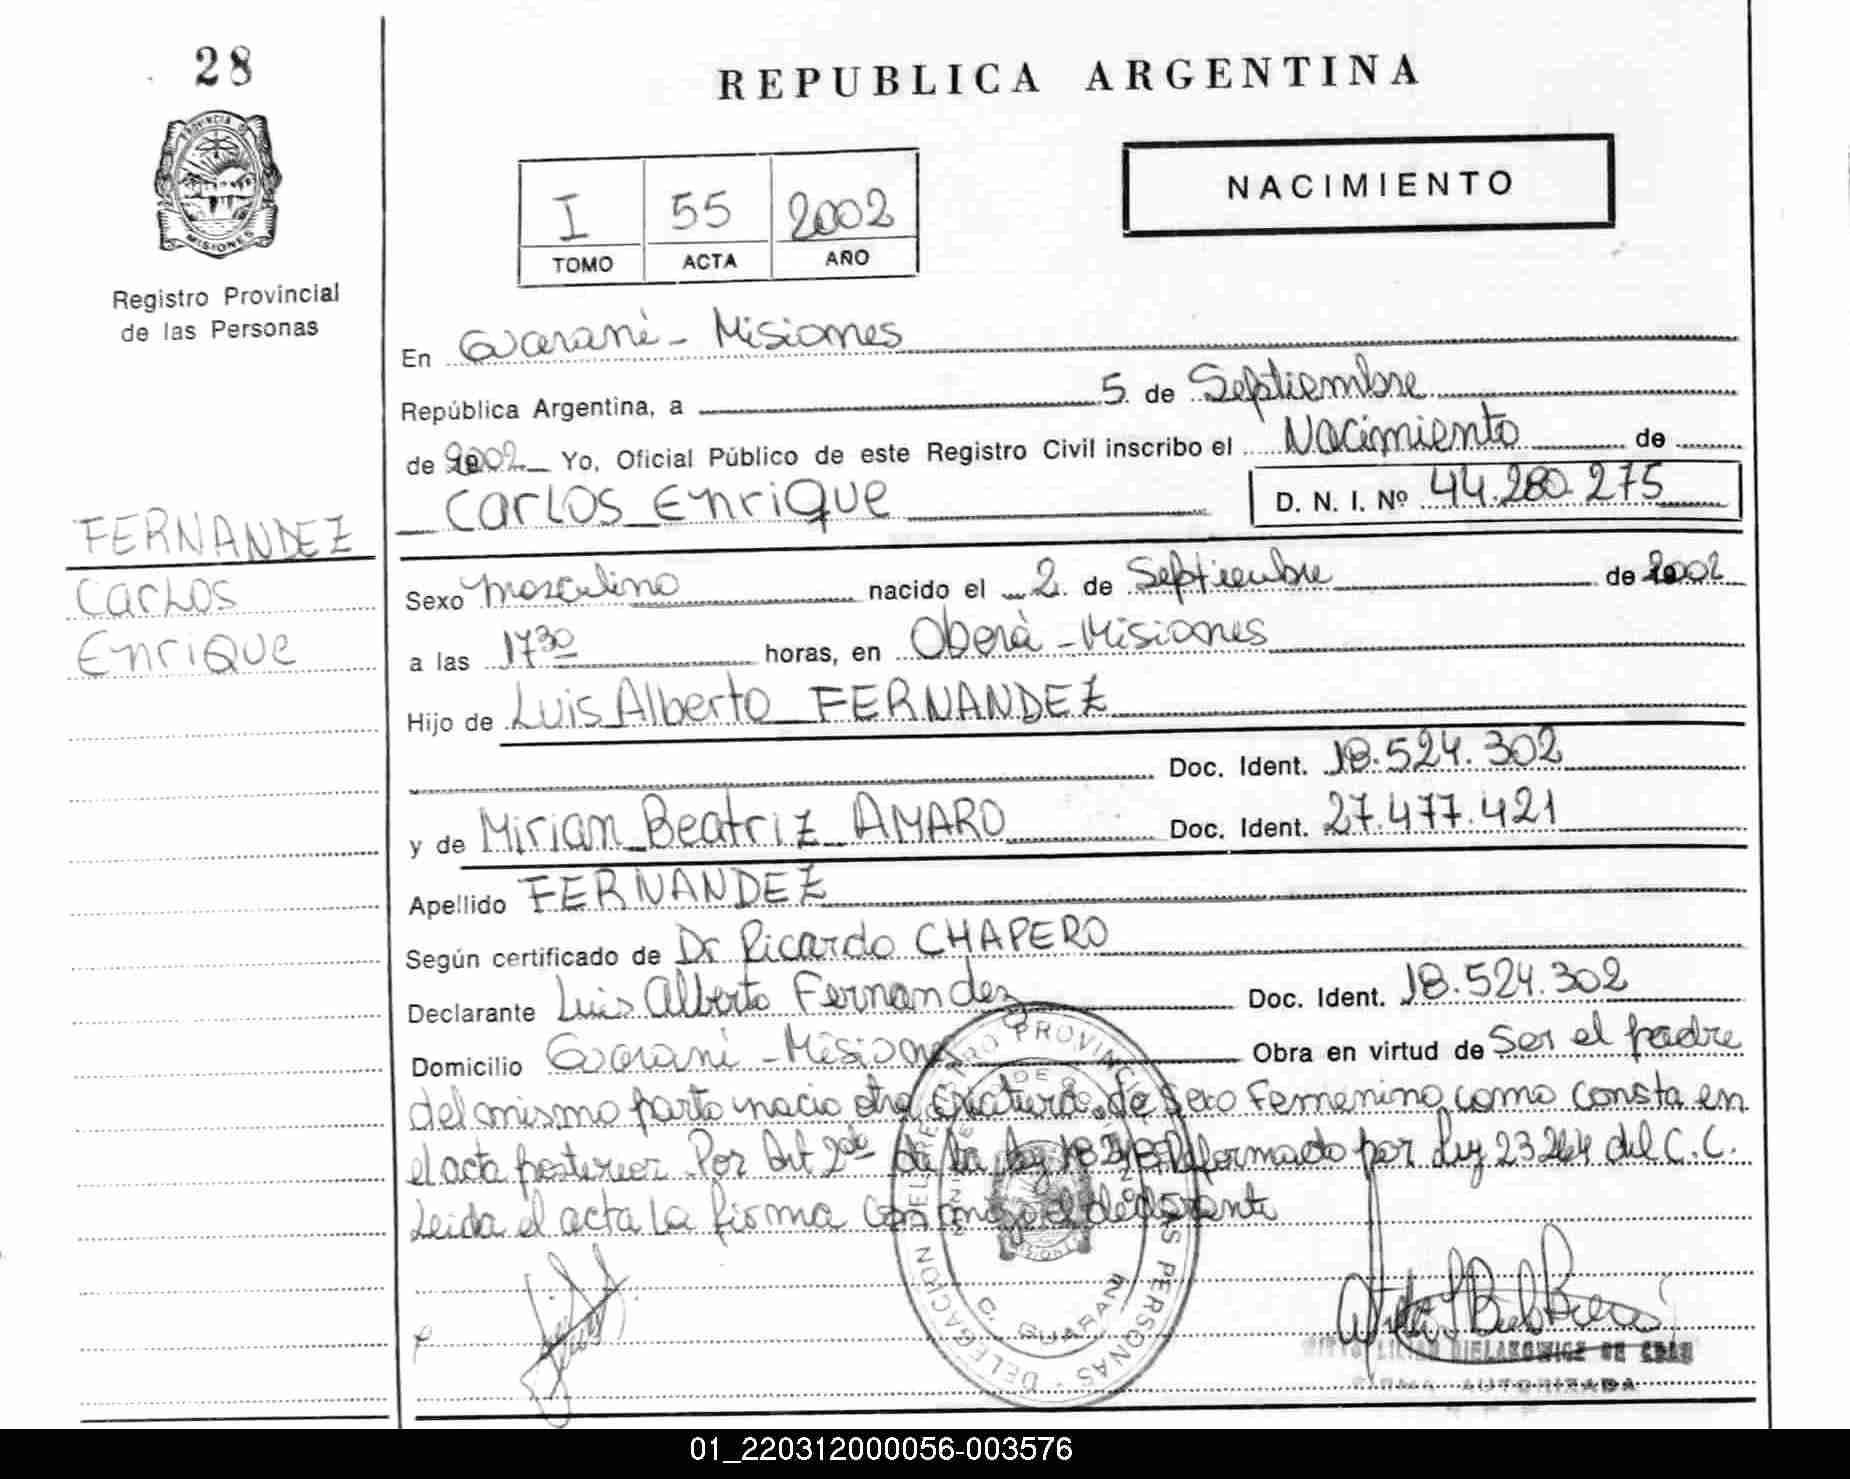 28
PROVINCIA DE
MISIONES
Registro Provincial
de las Personas
REPUBLICA ARGENTINA
NACIMIENTO
I 55 2002
TOMO ACTA AÑO
En Guarani - Misiones
República Argentina, a 5 de Septiembre
de 2002 Yo, Oficial Público de este Registro Civil inscribo el Nacimiento de
Carlos Enrique D. N. I. Nº 44.280.275
FERNANDEZ
Carlos
Enrique
Sexo masculino nacido el 2 de Septiembre de 2002
a las 17 30 horas, en Oberà - Misiones
Hijo de Luis Alberto FERNANDEZ
Doc. Ident. 18.524.302
y de Mirian Beatriz AMARO Doc. Ident. 27.477.421
Apellido FERNANDEZ
Según certificado de Dr Ricardo CHAPERO
Declarante Luis Alberto Fernandez Doc. Ident. 18.524.302
Domicilio Guarani - Misiones Obra en virtud de ser el padre
del mismo parto nacio otra criatura de sexo Femenino, como consta en
el acta posterior. Por Art 2do de la ley 18248 Reformado por Ley 23264 del C.C.
Leida el acta la firma conmigo el declarante
REGISTRO PROVINCIAL DE LAS PERSONAS - DELEGACIÓN
C. GUARANI
BIELAKOWICZ DE
FIRMA AUTORIZADA
01_220312000056-003576